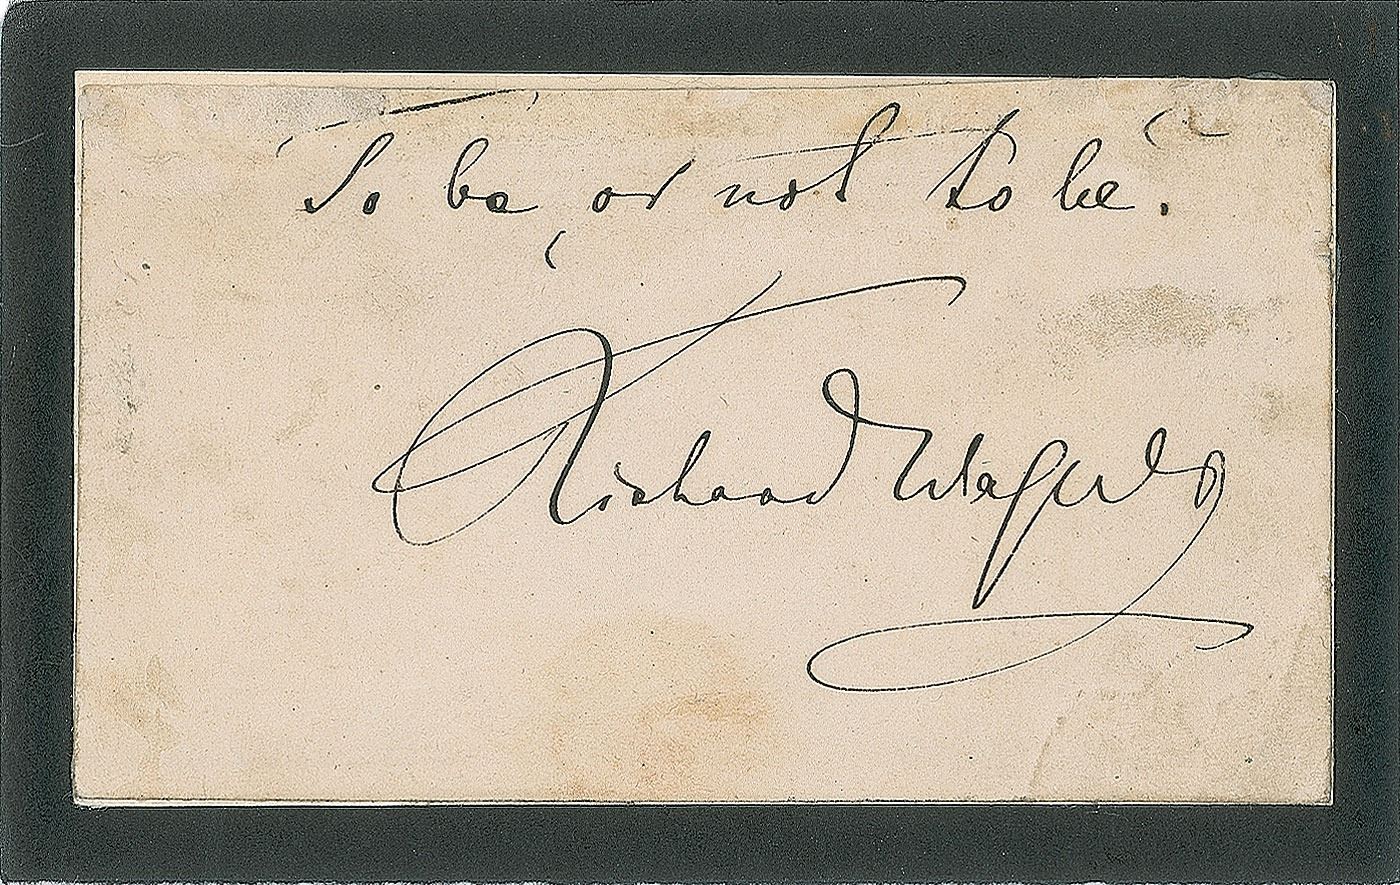 "To be, or not to be."
Richard Wagner